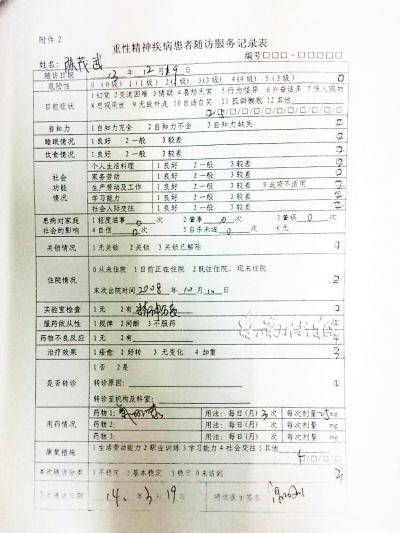 附件 2
重性精神疾病患者随访服务记录表
姓名: 编号□□□-□□□□□
随访日期 13 年 12 月 19 日
危险性 0 (0级) 1 (1级) 2 (2级) 3 (3级) 4 (4级) 5 (5级) 0
目前症状 1 幻觉 2 交流困难 3 猜疑 4 喜怒无常 5 行为怪异 6 兴奋话多 7 伤人毁物
8 悲观厌世 9 无故外走 10 自语自笑 11 孤僻懒散 12 其他
自知力 1 自知力完全 2 自知力不全 3 自知力缺失
睡眠情况 1 良好 2 一般 3 较差
饮食情况 1 良好 2 一般 3 较差
社会功能情况 个人生活料理 1 良好 2 一般 3 较差
家务劳动 1 良好 2 一般 3 较差
生产劳动及工作 1 良好 2 一般 3 较差 9 此项不适用
学习能力 1 良好 2 一般 3 较差
社会人际交往 1 良好 2 一般 3 较差
患病对家庭社会的影响 1 轻度滋事 0 次 2 肇事 0 次 3 肇祸 0 次
4 自伤 次 5 自杀未遂 次 6 无
关锁情况 1 无关锁 2 关锁 3 关锁已解除
住院情况 0 从未住院 1 目前正在住院 2 既往住院,现未住院
末次出院时间 2008 年 10 月 10 日
实验室检查 1 无 2 有
服药依从性 1 规律 2 间断 3 不服药
药物不良反应 1 无 2 有
治疗效果 1 痊愈 2 好转 3 无变化 4 加重 3
是否转诊 1 否 2 是
转诊原因:
转诊至机构及科室:
用药情况 药物 1: 用法: 每日(月) 3 次 每次剂量 25 mg
药物 2: 用法: 每日(月) 次 每次剂量 mg
药物 3: 用法: 每日(月) 次 每次剂量 mg
康复措施 1 生活劳动能力 2 职业训练 3 学习能力 4 社会交往 5 其他
本次随访分类 1 不稳定 2 基本稳定 3 稳定 0 未访到
下次随访日期 14 年 3 月 19 日 随访医生签名